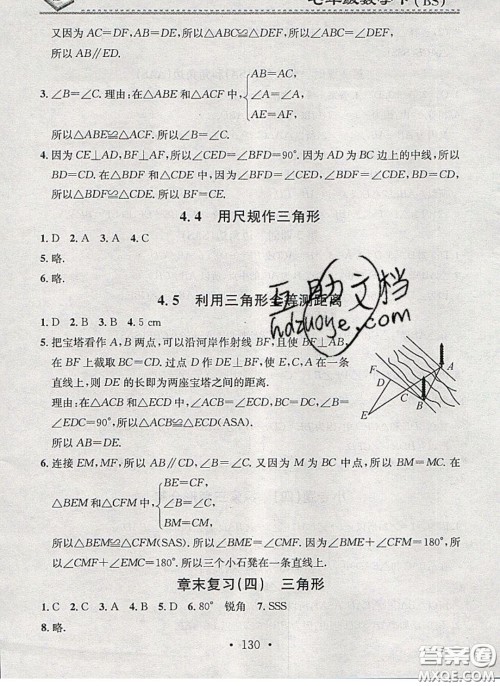 七年级数学下(BS)
又因为AC=DF,AB=DE,所以△ABC≌△DEF,所以∠ABC=∠DEF,
所以AB∥ED.
3. ∠B=∠C. 理由:在△ABE和△ACF中,
AB=AC,
∠A=∠A,
AE=AF,
所以△ABE≌△ACF. 所以∠B=∠C.
4. 因为CE⊥AD,BF⊥AF,所以∠CED=∠BFD=90°. 因为AD为BC边上的中线,所以
BD=CD. 在△BDF和△CDE中,因为∠BFD=∠CED,∠BDF=∠CDE,BD=CD,
所以△BDF≌△CDE. 所以BF=CE.
4.4 用尺规作三角形
1. D 2. A 3. A 4. C
5. 略.
6. 略.
4.5 利用三角形全等测距离
1. D 2. B 3. B 4. 5 cm
5. 把宝塔看作A,B两点,可以沿河岸作射线BF,且使BF⊥AB,
在BF上截取BC=CD. 过点D作DE⊥BF,使E,C,A在一条
直线上,则DE的长即为两座宝塔之间的距离.
理由:在△ABC和△EDC中,因为∠ACB=∠ECD,BC=DC,∠B=
∠EDC=90°,所以△ACB≌△ECD(ASA).
所以AB=DE.
F
D
C
A
B
E
6. 连接EM,MF,所以AB∥CD,∠B=∠C. 又因为M为BC中点,所以BM=MC. 在
△BEM和△CFM中,
BE=CF,
∠B=∠C,
BM=CM,
所以△BEM≌△CFM(SAS). 所以∠BME=∠CMF. 因为∠BME+∠CFM=180°,所
以∠CMF+∠EMC=180°. 所以三个小石凳在一条直线上.
章末复习(四) 三角形
1. C 2. C 3. A 4. B 5. D 6. 80° 锐角 7. SSS
8. 略.
·130·
互助文档
hdzuoye.com
答案圈
MXQE.COM